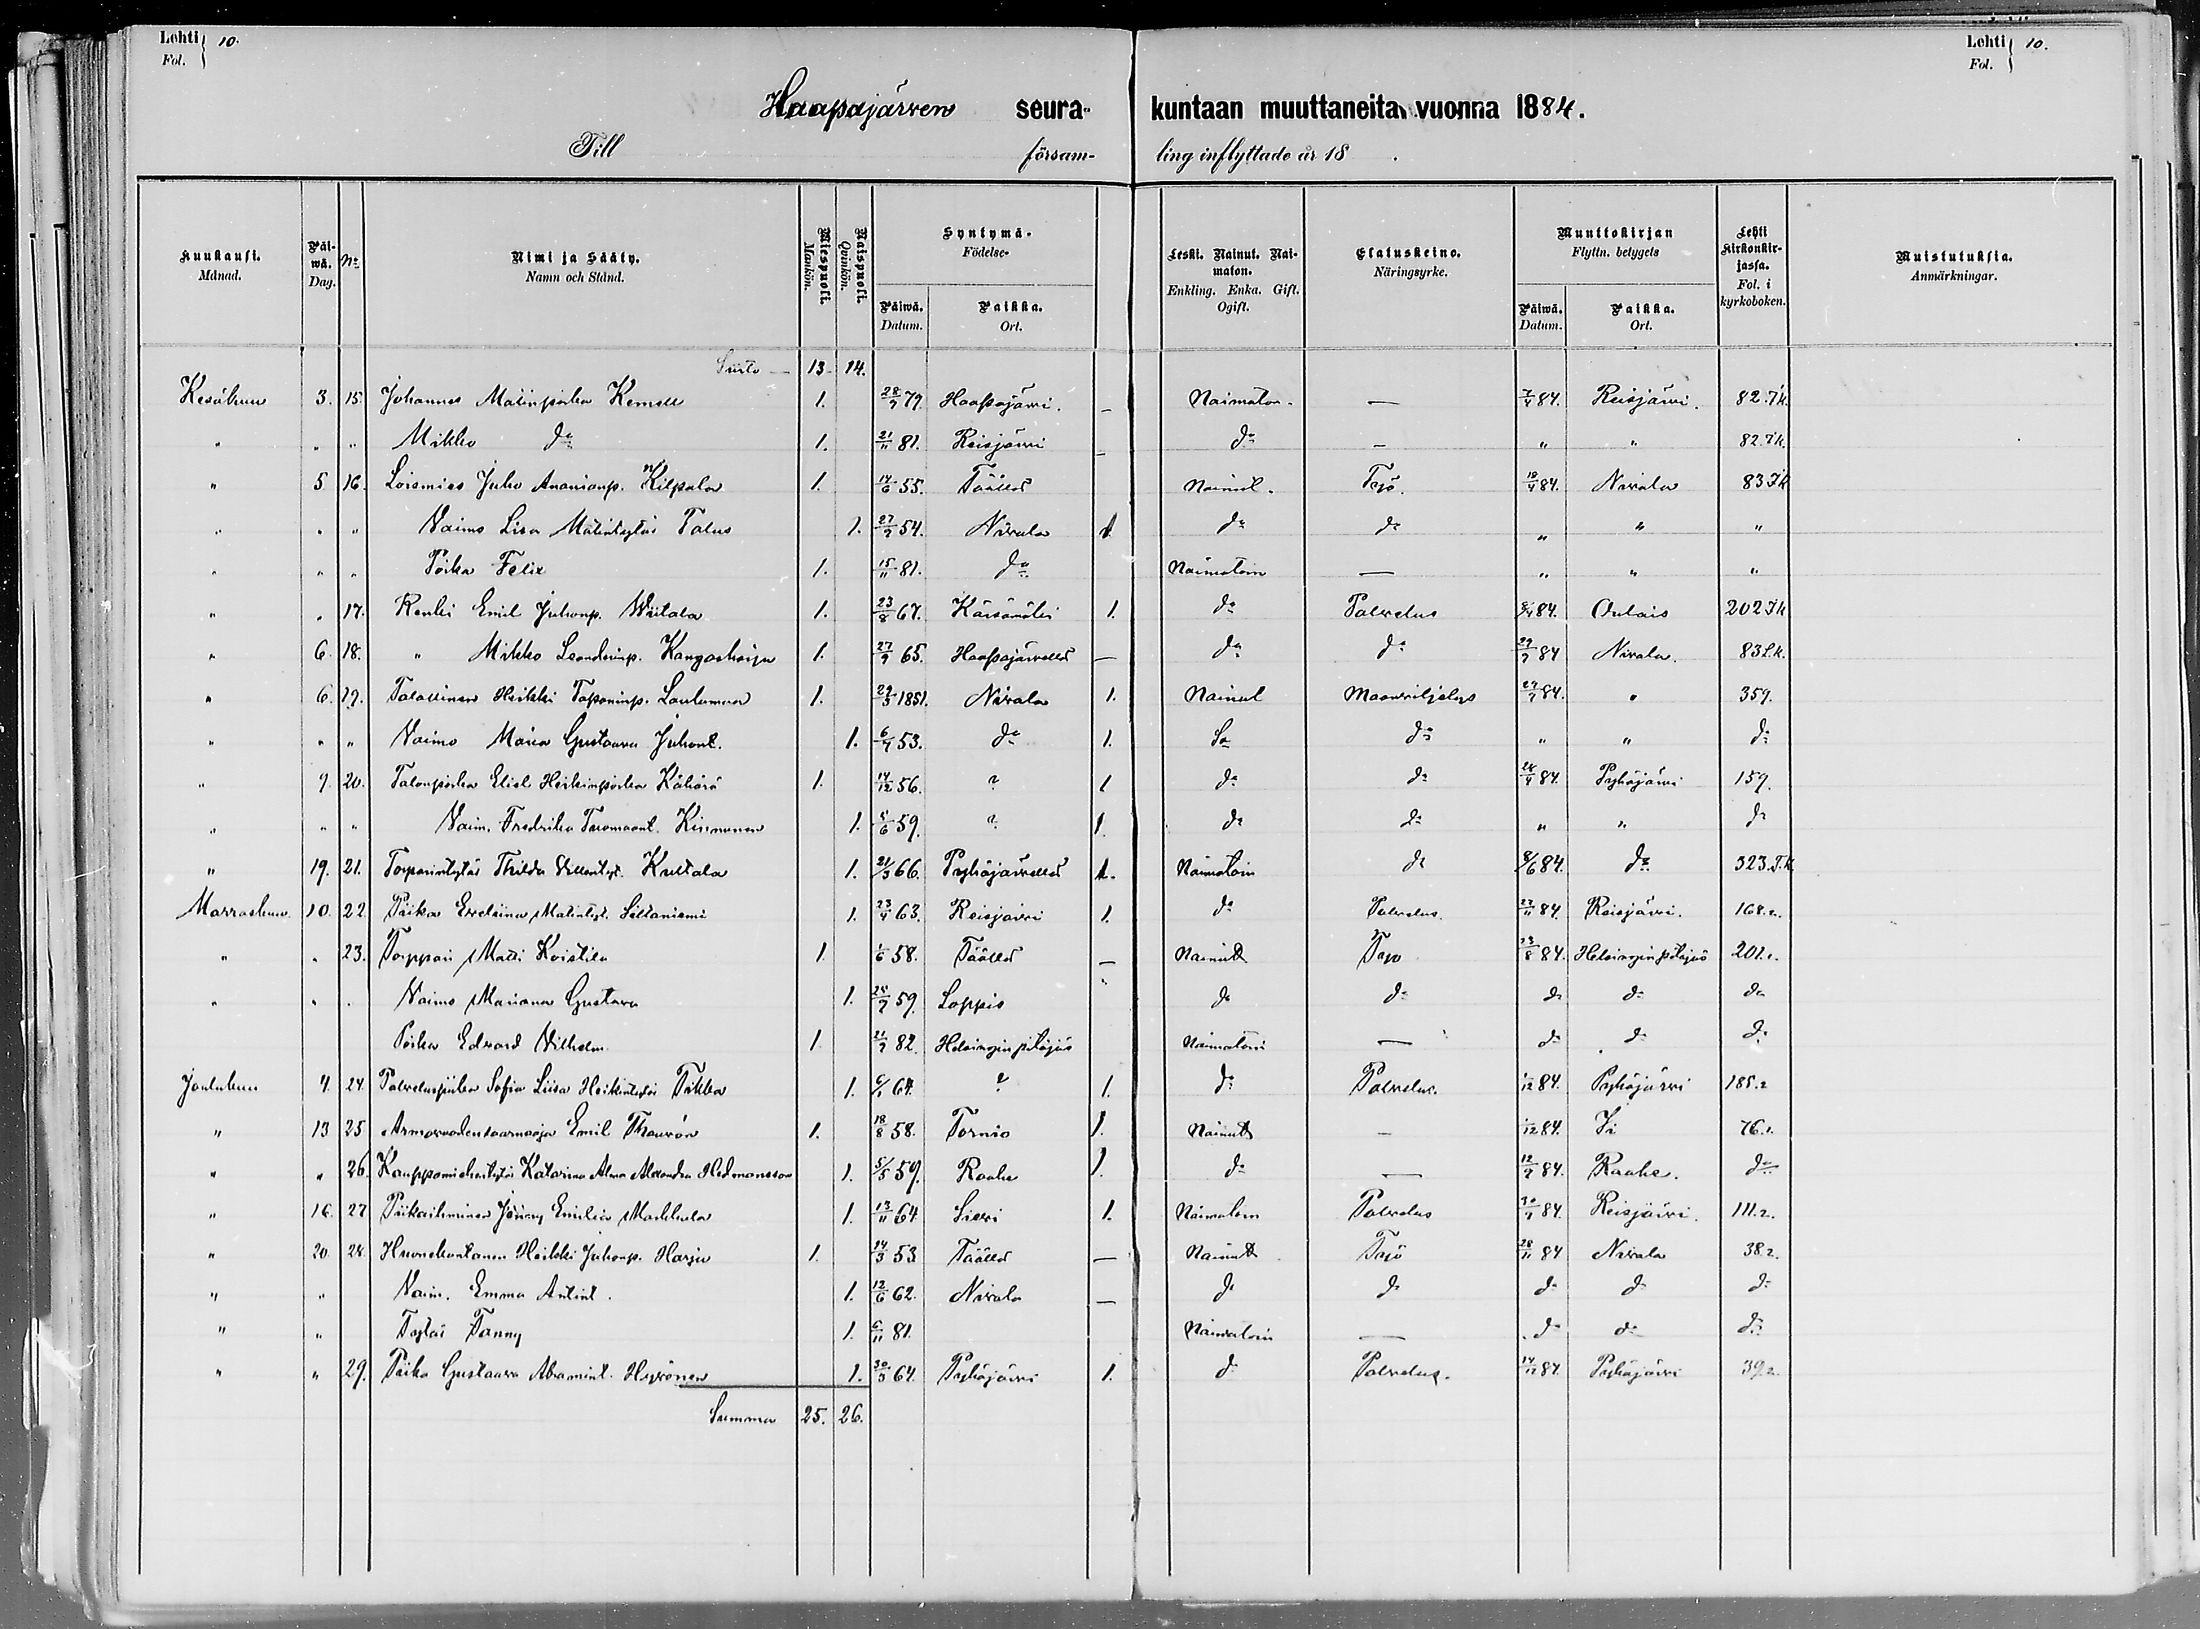 Lehti 10. Lehti 10.
Fol. Fol.
Haapajärven seura- kuntaan muuttaneita vuonna 1884.
Till försam- ling inflyttade år 18 .
Kuukausi. Månad. Päiwä. Day. No Nimi ja Sääty. Namn och Stånd. Miespuoli. Mankön. Naispuoli. Qvinkön. Syntymä- Födelse- Päiwä. Datum. Paikka. Ort. Leski. Nainut. Naimaton. Enkling. Enka. Gift. Ogift. Elatuskeino. Näringsyrke. Muuttokirjan Flyttn. betygets Päiwä. Datum. Paikka. Ort. Lehti Kirkonkirjassa. Fol. i kyrkoboken. Muistutuksia. Anmärkningar.
Siirto — 13 14.
Kesäkuu 3. 15. Johannes Matinpoika 1. 28/9 79. Haapajärvi. — Naimaton. — 7/4 84. Reisjärvi. 82.
" " " Mikko do 1. 21/11 81. Reisjärvi — do — " " 82.
" 5. 16. Loismies Juho Ananianp. Kilpala 1. 14/6 55. Täällä Nainut. Työ. 84. Nivala 83
" " " Vaimo Liisa Matintytär Talus 1. 27/9 54. Nivala 1. do do " " "
" " " Poika Felix 1. 15/11 81. do Naimatoin — " " "
" " 17. Renki Emil Juhonp. Wiitala 1. 23/8 67. Kärsämäki 1. do Palvelus 84. Oulais 202
" 6. 18. " Mikko Leanderinp. Kangasharju 1. 27/9 65. Haapajärvellä — do do 84 Nivala. 83
" 6. 19. Talollinen Heikki Tapaninp. Laulumaa 1. 1851. Nivala 1. Nainut Maanviljelys 84. " 359.
" " " Vaimo Maria Gustaava Juhont. 1. 53. do 1. do do " " do
" 9. 20. Talonpoika Elias Heikinpoika Kähärä 1. 14/12 56. ? 1 do do 84. Pyhäjärvi 159.
" " " Vaim. Fredrika Tuomaant. Kinnunen 1. 5/6 59. ? 1. do do " " do
" 19. 21. Torparintytär Thilda 1. 21/3 66. Pyhäjärvellä 1. Naimatoin do 8/6 84. do 323.
Marraskuu 10. 22. Piika Eveliina Matintyt. Siltaniemi 1. 23/4 63. Reisjärvi 1. do Palvelus. 84. Reisjärvi. 168.2.
" " 23. Torppari Matti Koistila 1. 1/6 58. Täällä — Nainut Työ 23/8 84. Helsingin pitäjäs 201.
" " " Vaimo Mariana Gustava 1. 59. Loppis do do do do do
Poika Edvard Vilhelm 1. 82. Helsingin pitäjäs Naimatoin — do do do
Joulukuu 4. 24. Palveluspiika Sofia Liisa Heikintytär Tikka 1. 64. ? 1. do Palvelus. 1/12 84. Pyhäjärvi 185.2
" 13 25 Emil Thaurén 1. 18/8 58. Tornio 1. Nainut — 84. Ii 76.
" " 26. Kauppamiehentytär Katarina Alma Alexandra Hedmansson 1. 5/5 59. Raahe 1. do — 84. Raahe. do
" 16. 27 Piikaihminen Jenny Emilia Markkula 1. 13/11 64. Sievi 1. Naimatoin Palvelus 84. Reisjärvi. 111.2.
" 20. 28. Huonekuntanen Heikki Juhonp. Harju 1. 14/3 53 Täällä — Nainut Työ 28/11 84 Nivala 38 2.
" " Vaim. Emma Antint. 1. 12/6 62. Nivala — do do do do do
" " Tytär Fanny 1. 6/11 81. Naimatoin — do do do
" " 29. Piika Gustaava Abramint. Hyvönen 1. 64. Pyhäjärvi 1. do Palvelus. 84. Pyhäjärvi 39 2.
Summa 25. 26.